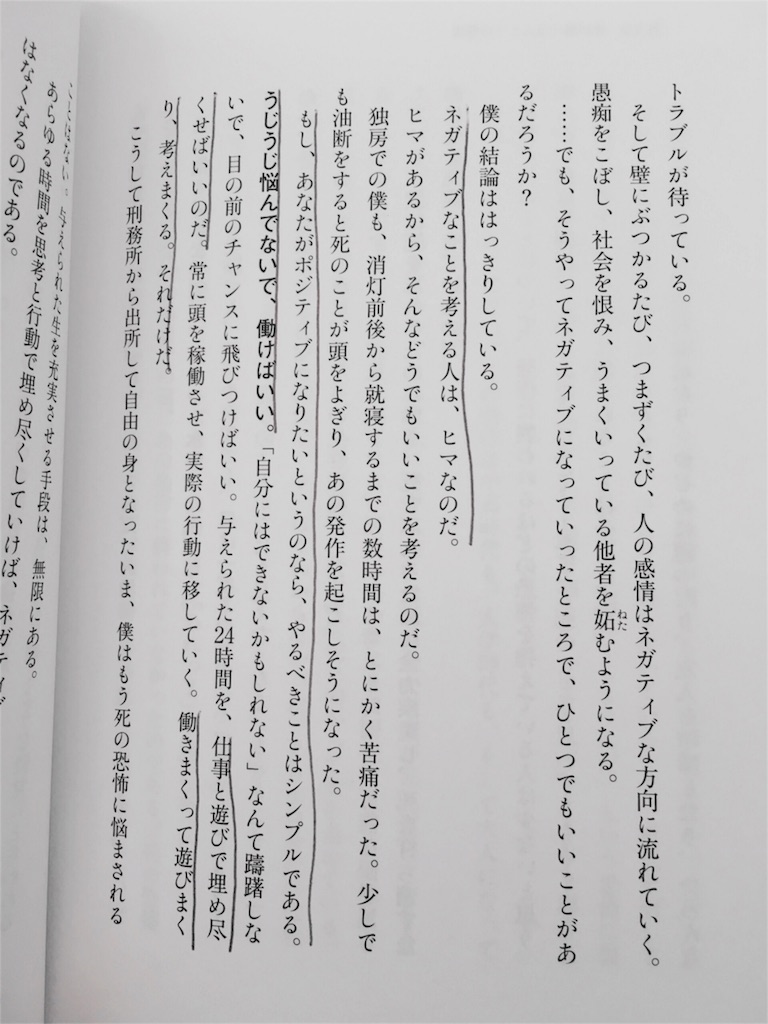 トラブルが待っている。
そして壁にぶつかるたび、つまずくたび、人の感情はネガティブな方向に流れていく。
愚痴をこぼし、社会を恨み、うまくいっている他者を妬むようになる。
ねた
……でも、そうやってネガティブになっていったところで、ひとつでもいいことがあ
るだろうか？
僕の結論ははっきりしている。
ネガティブなことを考える人は、ヒマなのだ。
ヒマがあるから、そんなどうでもいいことを考えるのだ。
独房での僕も、消灯前後から就寝するまでの数時間は、とにかく苦痛だった。少しで
も油断をすると死のことが頭をよぎり、あの発作を起こしそうになった。
もし、あなたがポジティブになりたいというのなら、やるべきことはシンプルである。
うじうじ悩んでないで、働けばいい。「自分にはできないかもしれない」なんて躊躇しな
いで、目の前のチャンスに飛びつけばいい。与えられた24時間を、仕事と遊びで埋め尽
くせばいいのだ。常に頭を稼働させ、実際の行動に移していく。働きまくって遊びまく
り、考えまくる。それだけだ。
こうして刑務所から出所して自由の身となったいま、僕はもう死の恐怖に悩まされる
ことはない。与えられた生を充実させる手段は、無限にある。
あらゆる時間を思考と行動で埋め尽くしていけば、ネガティブ
はなくなるのである。